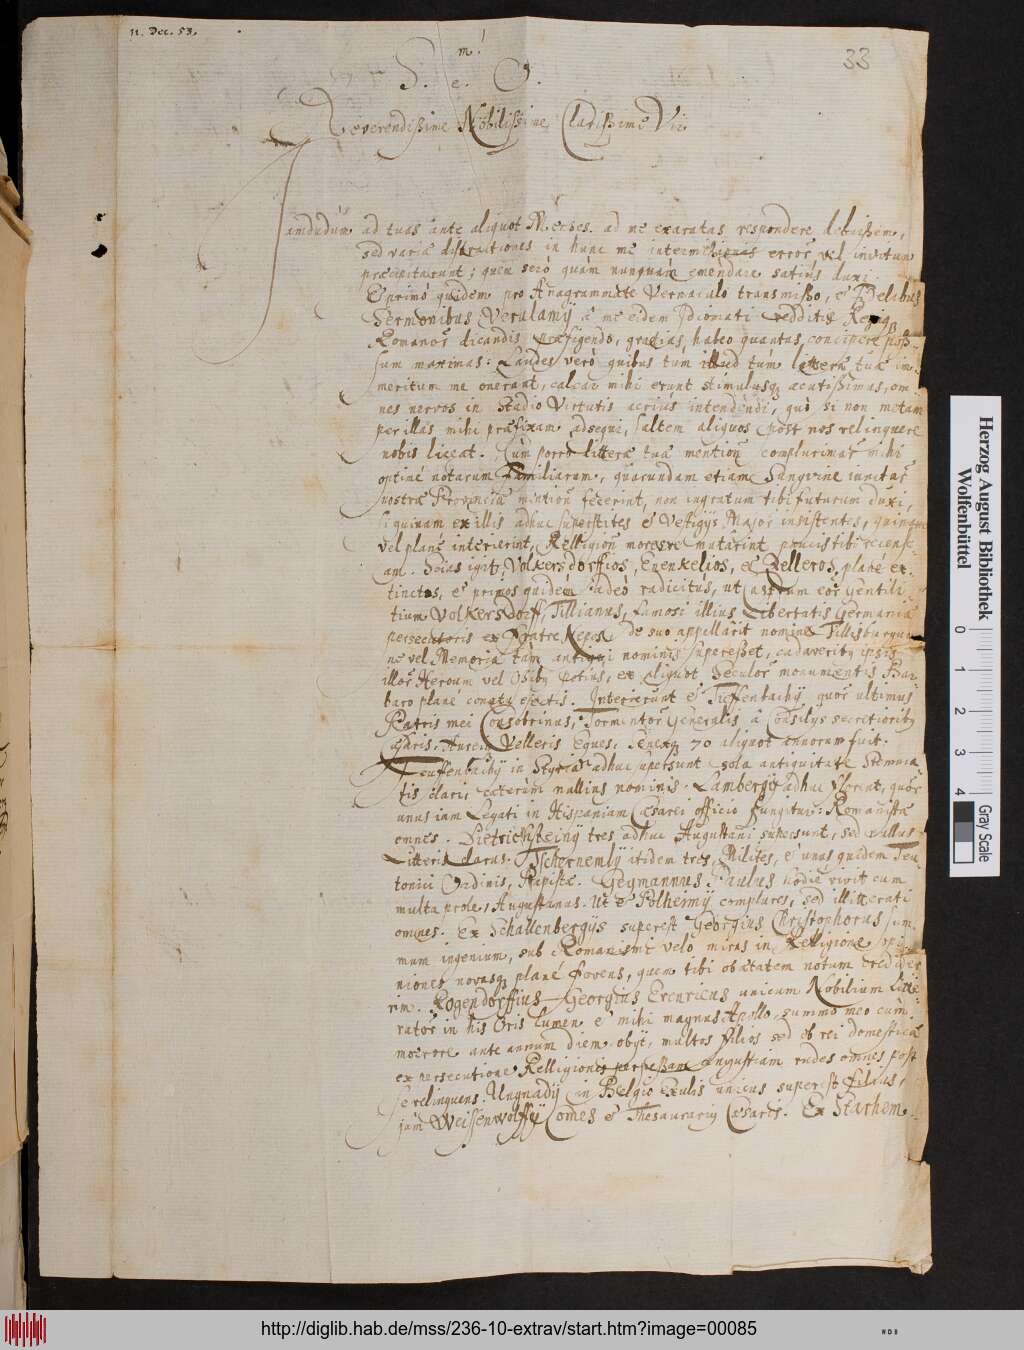 11. Dec. 53.
33
S. m! e. O.
Reverendissime Nobilissime Clarissime Vir
Jamdudum ad tuas ante aliquot Menses ad me exaratas respondere debuissem,
sed variæ distractiones in hunc me error, vel invitum
præcipitarunt; quem serò quàm nunquàm emendare satius duxi.
Et primò quidem pro Anagrammate Vernaculo transmisso, et
Sermonibus Verulamij à me eidem Idiomati redditis
Romanos dicandis præfigendo, gratias habeo quantas concipere pos-
sum maximas: Laudes verò quibus tùm illud tùm litteræ tuæ im-
meritum me onerant, calcar mihi erunt stimulusq acutissimus, om
nes nervos in Stadio Virtutis acriùs intendendi, quò si non metam
per illas mihi præfixam adsequi, saltem aliquos post nos relinquere
nobis liceat. Cùm porrò litteræ tuæ mention complurimar mihi
optimè notarum Familiarum, quarundam etiam Sangvine iunctar
nostræ Provinciæ mention fecerint, non ingratum tibi futurum duxi,
si quinam ex illis adhuc superstites et Vestigijs Major insistentes, quinque
vel planè interierint, Relligion moresve mutarint paucis tibi recense-
am. Scias igitr Volkersdorffios, Enenkelios, et Zelleros planè ex-
tinctos, et primos quidem adeò radicitùs, ut Castrum eor Gentili-
tium Volkersdorff, Tillianus, famosi illius Libertatis Germaniæ
persecutoris ex Fratre Nepos, de suo appellârit nomine Tillisburgum
ne vel Memoria tàm antiqui nominis superesset, cadaveribq ipsis
illor Heroum vel Ossibq potiùs, ex aliquot Seculor monumentis Bar-
baro planè conatu ejectis. Interierunt et Tieffenbachij quor ultimus
Patris mei Consobrinus, Tormentor Generalis à Consilijs secretioribq
Cæsaris, Aurei Velleris Eques, Senexq 70 aliquot annorum fuit.
Teuffenbachij in Styria adhuc supersunt sola antiquitate Stemma-
tis clari, cæterùm nullius nominis. Lambergij adhuc florent, quor
unus iam Legati in Hispaniam Cæsarei officio fungitur: Romanistæ
omnes. Dietrichsteinij tres adhuc Augustani supersunt, sed nullus
Litteris clarus. Tschernemlij itidem tres, Milites, et unus quidem Teu-
tonici Ordinis, Papistæ. Geymannus Paulus hodiè vivit cum
multa prole, Augustanus. Ut et Polhemij complures, sed illitterati
omnes. Ex Schallenbergijs superest Georgius Christophorus sum-
mum ingenium, sub Romanismi velo miras in Relligione opi-
niones novasq planè fovens, quem tibi ob ætatem notum credide-
rim. Rogendorffius Georgius Erenricus unicum Nobilium Litte-
rator in his Oris lumen et mihi magnus Apollo, summo meo cum
mœrore ante annum diem obijt, multos filios sed ob rei domesticæ
ex persecutione Relligionis perpessam angustiam rudes omnes post
se relinquens. Ungnadij in Belgio Exulis unicus superest filius,
jàm Weissenwolffij Comes et Thesaurarij Cæsaris. Ex Starhem-
Herzog August Bibliothek
Wolfenbüttel
0 1 2 3 4
Gray Scale
http://diglib.hab.de/mss/236-10-extrav/start.htm?image=00085